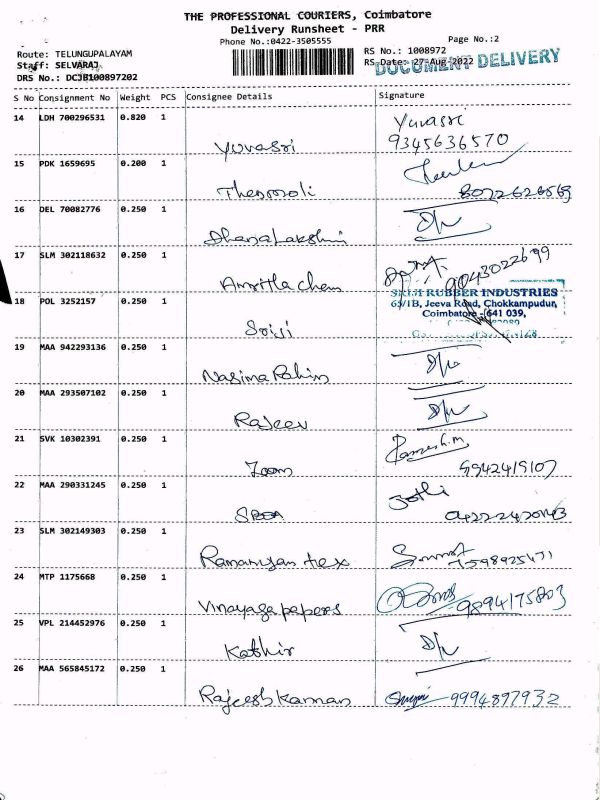 THE PROFESSIONAL COURIERS, Coimbatore
Delivery Runsheet - PRR
Phone No.:0422-3505555
Page No.:2
Route: TELUNGUPALAYAM
RS No.: 1008972
Staff: SELVARAJ
RS Date: 27-Aug-2022
DOCUMENT DELIVERY
DRS No.: DCJB100897202
S No Consignment No Weight PCS Consignee Details Signature
14 LDH 700296531 0.820 1 Yuvasri Yuvasri
9345636570
15 PDK 1659695 0.200 1
16 DEL 70082776 0.250 1 Dhanalakshmi D/w
17 SLM 302118632 0.250 1 Amritla chem 9043022699
18 POL 3252157 0.250 1 Sriji
RUBBER INDUSTRIES
65/1B, Jeeva Road, Chokkampudur,
Coimbatore - 641 039,
19 MAA 942293136 0.250 1 Nasima Rahim D/w
20 MAA 293507102 0.250 1 Rajeev D/w
21 SVK 10302391 0.250 1 Zoom Ramesh.m
9942419107
22 MAA 290331245 0.250 1 Jothi
04222420143
23 SLM 302149303 0.250 1 Ramaniyan tex
7598925471
24 MTP 1175668 0.250 1 Vinayaga papers 9894175803
25 VPL 214452976 0.250 1 Kathir D/w
26 MAA 565845172 0.250 1 Rajeesh kannan 9994897932